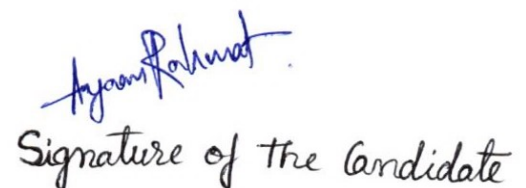 Ayaan Rahmat
Signature of the Candidate